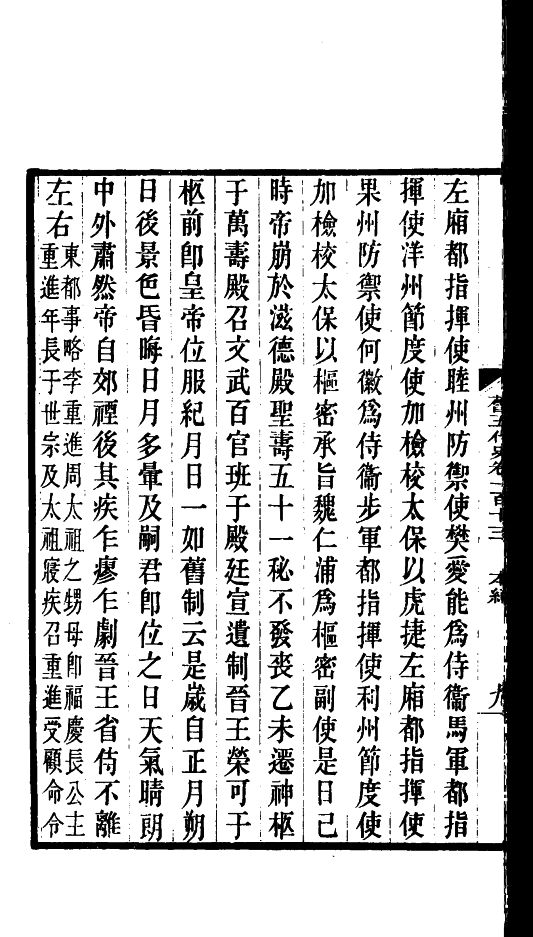 舊五代史卷一百十三 本紀 九
左廂都指揮使睦州防禦使樊愛能爲侍衞馬軍都指
揮使洋州節度使加檢校太保以虎捷左廂都指揮使
果州防禦使何徽爲侍衞步軍都指揮使利州節度使
加檢校太保以樞密承旨魏仁浦爲樞密副使是日巳
時帝崩於滋德殿聖壽五十一秘不發喪乙未遷神柩
于萬壽殿召文武百官班于殿廷宣遺制晉王榮可于
柩前卽皇帝位服紀月日一如舊制云是歲自正月朔
日後景色昏晦日月多暈及嗣君卽位之日天氣晴朗
中外肅然帝自郊禋後其疾乍瘳乍劇晉王省侍不離
左右
東都事略李重進周太祖之甥母卽福慶長公主
重進年長于世宗及太祖寢疾召重進受顧命令